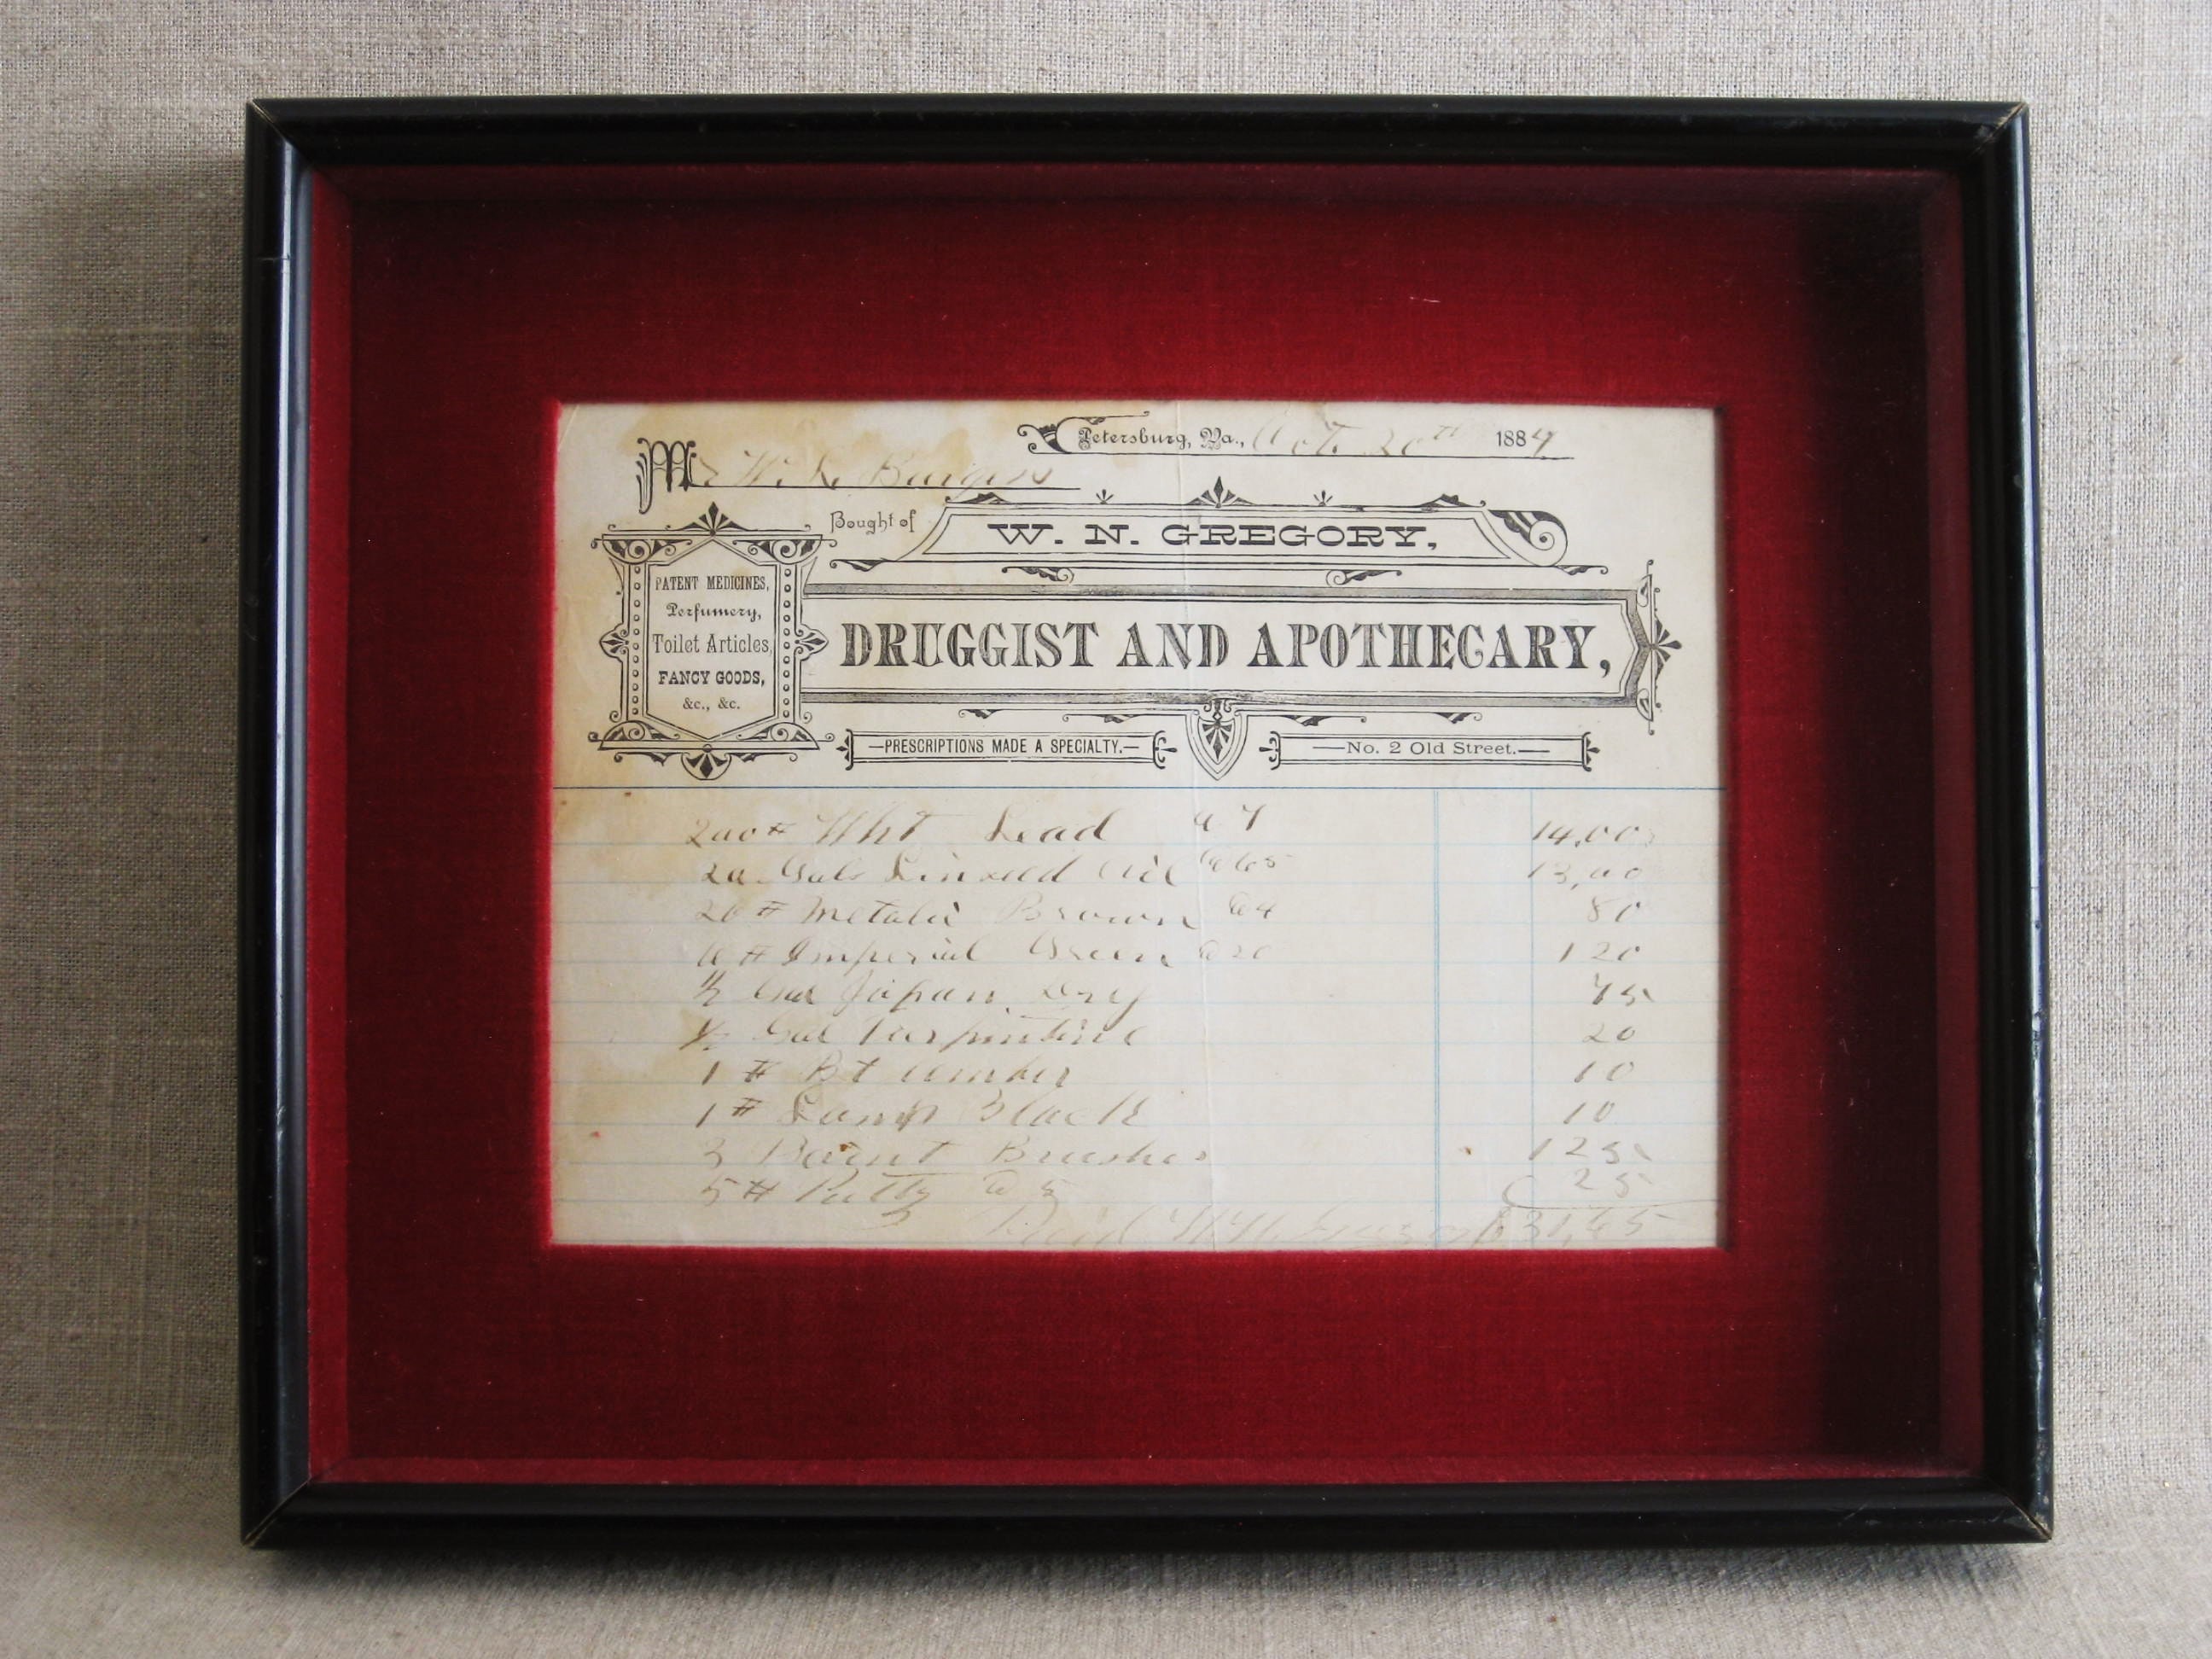 Petersburg, Va., Oct. 20th 1884
Mr W. L. Burgess
Bought of W. N. GREGORY,
DRUGGIST AND APOTHECARY,
PATENT MEDICINES,
Perfumery,
Toilet Articles,
FANCY GOODS,
&c., &c.
—PRESCRIPTIONS MADE A SPECIALTY.—
—No. 2 Old Street.—
200 # Wht Lead @ 7 14,00
20 Gals Linseed Oil @ 65 13,00
20 # Metalic Brown @ 4 80
6 # Imperial Green @ 20 1 20
1/2 Gal Japan Dry 75
1/2 Gal Turpintine 20
1 # Bt umber 10
1 # Lamp Black 10
3 Paint Brushes 1 25
5 # Putty @ 5 25
31,65